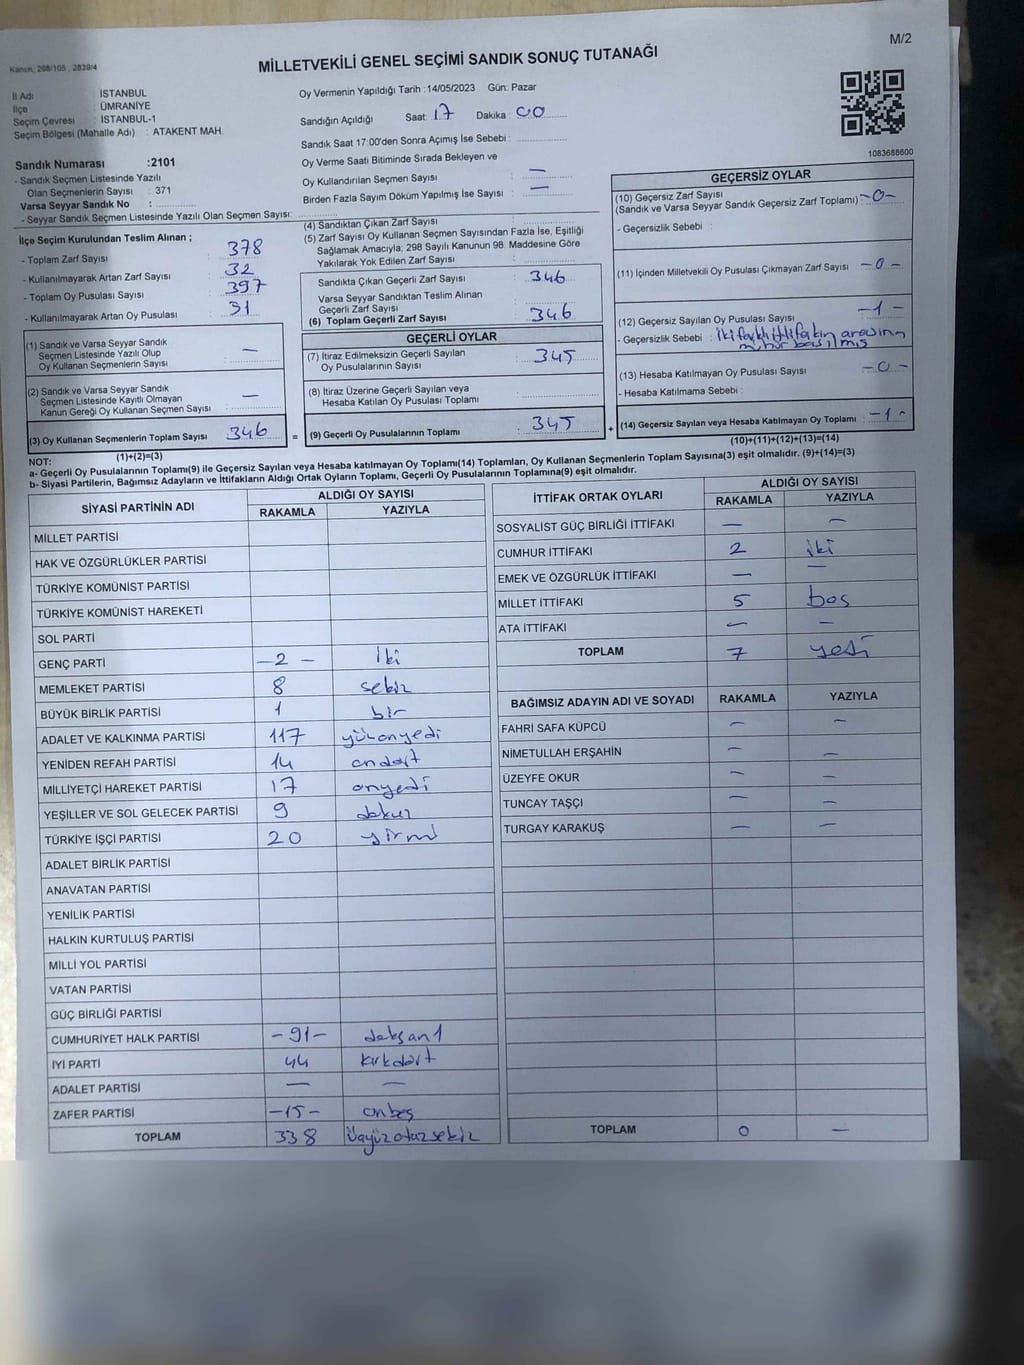 M/2
Kanun, 298/105 , 2839/4
MİLLETVEKİLİ GENEL SEÇİMİ SANDIK SONUÇ TUTANAĞI
İl Adı : İSTANBUL
İlçe : ÜMRANİYE
Seçim Çevresi : İSTANBUL-1
Seçim Bölgesi (Mahalle Adı) : ATAKENT MAH.
Sandık Numarası :2101
- Sandık Seçmen Listesinde Yazılı
Olan Seçmenlerin Sayısı : 371
Varsa Seyyar Sandık No :
- Seyyar Sandık Seçmen Listesinde Yazılı Olan Seçmen Sayısı:
Oy Vermenin Yapıldığı Tarih :14/05/2023 Gün: Pazar
Sandığın Açıldığı Saat: 17 Dakika : 00
Sandık Saat 17:00'den Sonra Açımış İse Sebebi :
Oy Verme Saati Bitiminde Sırada Bekleyen ve
Oy Kullandırılan Seçmen Sayısı : —
Birden Fazla Sayım Döküm Yapılmış İse Sayısı : —
1083688600
İlçe Seçim Kurulundan Teslim Alınan ;
- Toplam Zarf Sayısı : 378
- Kullanılmayarak Artan Zarf Sayısı : 32
- Toplam Oy Pusulası Sayısı : 397
- Kullanılmayarak Artan Oy Pusulası : 31
(1) Sandık ve Varsa Seyyar Sandık
Seçmen Listesinde Yazılı Olup
Oy Kullanan Seçmenlerin Sayısı : —
(2) Sandık ve Varsa Seyyar Sandık
Seçmen Listesinde Kayıtlı Olmayan
Kanun Gereği Oy Kullanan Seçmen Sayısı : —
(3) Oy Kullanan Seçmenlerin Toplam Sayısı : 346
(1)+(2)=(3)
(4) Sandıktan Çıkan Zarf Sayısı :
(5) Zarf Sayısı Oy Kullanan Seçmen Sayısından Fazla İse, Eşitliği
Sağlamak Amacıyla; 298 Sayılı Kanunun 98. Maddesine Göre
Yakılarak Yok Edilen Zarf Sayısı :
Sandıkta Çıkan Geçerli Zarf Sayısı : 346
Varsa Seyyar Sandıktan Teslim Alınan
Geçerli Zarf Sayısı :
(6) Toplam Geçerli Zarf Sayısı : 346
GEÇERLİ OYLAR
(7) İtiraz Edilmeksizin Geçerli Sayılan
Oy Pusulalarının Sayısı : 345
(8) İtiraz Üzerine Geçerli Sayılan veya
Hesaba Katılan Oy Pusulası Toplamı :
= (9) Geçerli Oy Pusulalarının Toplamı : 345 +
GEÇERSİZ OYLAR
(10) Geçersiz Zarf Sayısı
(Sandık ve Varsa Seyyar Sandık Geçersiz Zarf Toplamı) : -0-
- Geçersizlik Sebebi :
(11) İçinden Milletvekili Oy Pusulası Çıkmayan Zarf Sayısı : -0-
(12) Geçersiz Sayılan Oy Pusulası Sayısı : -1-
- Geçersizlik Sebebi : İki farklı ittifakın arasına
mühür basılmış
(13) Hesaba Katılmayan Oy Pusulası Sayısı : -0-
- Hesaba Katılmama Sebebi :
(14) Geçersiz Sayılan veya Hesaba Katılmayan Oy Toplamı : -1-
(10)+(11)+(12)+(13)=(14)
NOT:
a- Geçerli Oy Pusulalarının Toplamı(9) ile Geçersiz Sayılan veya Hesaba katılmayan Oy Toplamı(14) Toplamları, Oy Kullanan Seçmenlerin Toplam Sayısına(3) eşit olmalıdır. (9)+(14)=(3)
b- Siyasi Partilerin, Bağımsız Adayların ve İttifakların Aldığı Ortak Oyların Toplamı, Geçerli Oy Pusulalarının Toplamına(9) eşit olmalıdır.
SİYASİ PARTİNİN ADI ALDIĞI OY SAYISI
RAKAMLA YAZIYLA
MİLLET PARTİSİ
HAK VE ÖZGÜRLÜKLER PARTİSİ
TÜRKİYE KOMÜNİST PARTİSİ
TÜRKİYE KOMÜNİST HAREKETİ
SOL PARTİ
GENÇ PARTİ -2- İki
MEMLEKET PARTİSİ 8 sekiz
BÜYÜK BİRLİK PARTİSİ 1 bir
ADALET VE KALKINMA PARTİSİ 117 yüzonyedi
YENİDEN REFAH PARTİSİ 14 ondört
MİLLİYETÇİ HAREKET PARTİSİ 17 onyedi
YEŞİLLER VE SOL GELECEK PARTİSİ 9 dokuz
TÜRKİYE İŞÇİ PARTİSİ 20 yirmi
ADALET BİRLİK PARTİSİ
ANAVATAN PARTİSİ
YENİLİK PARTİSİ
HALKIN KURTULUŞ PARTİSİ
MİLLİ YOL PARTİSİ
VATAN PARTİSİ
GÜÇ BİRLİĞİ PARTİSİ
CUMHURİYET HALK PARTİSİ -91- doksan1
İYİ PARTİ 44 kırkdört
ADALET PARTİSİ — —
ZAFER PARTİSİ -15- onbeş
TOPLAM 338 üçyüzotuzsekiz
İTTİFAK ORTAK OYLARI ALDIĞI OY SAYISI
RAKAMLA YAZIYLA
SOSYALİST GÜÇ BİRLİĞİ İTTİFAKI — —
CUMHUR İTTİFAKI 2 iki
EMEK VE ÖZGÜRLÜK İTTİFAKI — —
MİLLET İTTİFAKI 5 beş
ATA İTTİFAKI — —
TOPLAM 7 yedi
BAĞIMSIZ ADAYIN ADI VE SOYADI RAKAMLA YAZIYLA
FAHRİ SAFA KÜPCÜ — —
NİMETULLAH ERŞAHİN — —
ÜZEYFE OKUR — —
TUNCAY TAŞÇI — —
TURGAY KARAKUŞ — —
TOPLAM 0 —